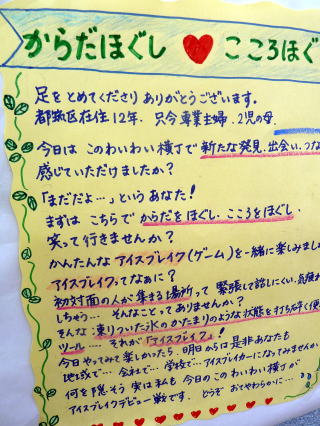 からだほぐし ♥ こころほぐ
足をとめてくださり ありがとうございます。
都筑区在住12年、只今専業主婦、2児の母、
今日は このわいわい横丁で 新たな発見、出会い、つな
感じていただけましたか?
「まだだよ…」という あなた!
まずは こちらで からだをほぐし・こころをほぐし
笑って行きませんか?
かんたんな アイスブレイク(ゲーム)を一緒に楽しみまし
アイスブレイクってなぁに?
初対面の人が集まる場所って 緊張して話しにくい、気疲れ
しちゃう… そんなことってありませんか?
そんな 凍りついた氷のかたまりのような状態を打ち砕く便
ツール… それが「アイスブレイク」!
今日やってみて 楽しかったら、明日からは是非あなたも
地域で… 会社で… 学校で… アイスブレイカーになってみませんか
何を隠そう 実は私も 今日の このわいわい横丁が
アイスブレイクデビュー戦です。どうぞ おてやわらかに…